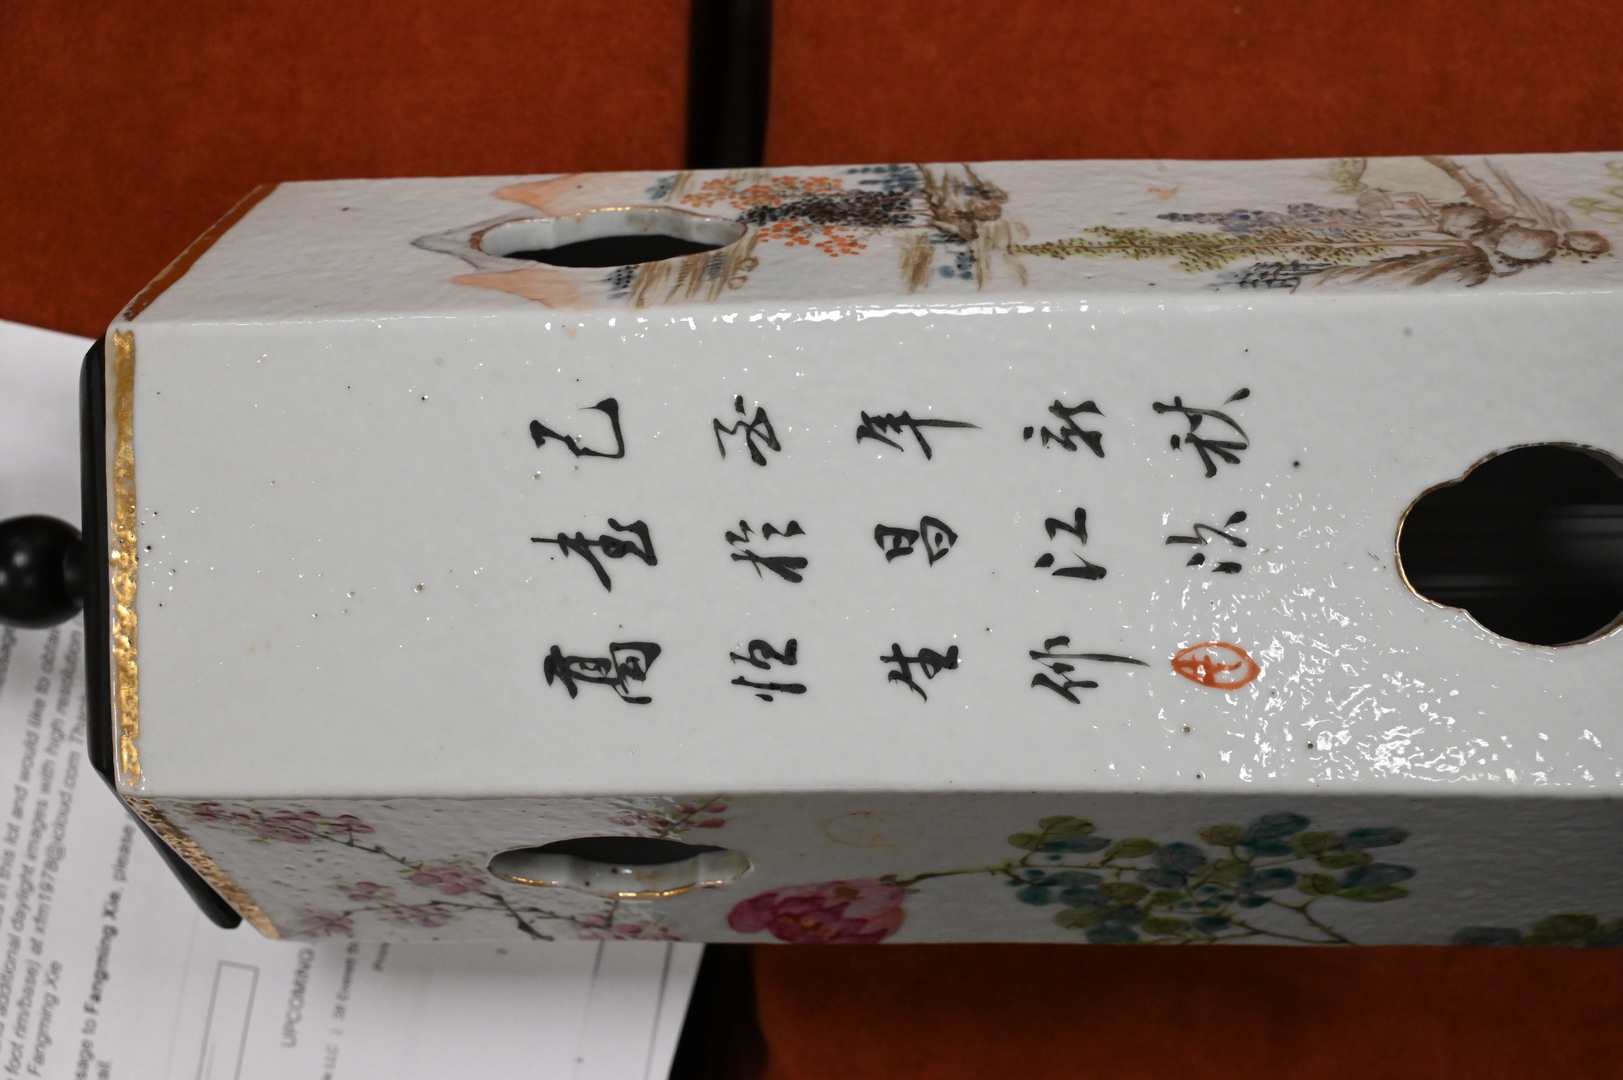 己亥年新秋
書於昌江次
萬恒生作
in this lot and would like to obtain
additional daylight images with high resolution
foot rim/base) at xfm1978@icloud.com
Fangming Xie
to Fangming Xie, please
UPCOMING
LLC | 36 Everett